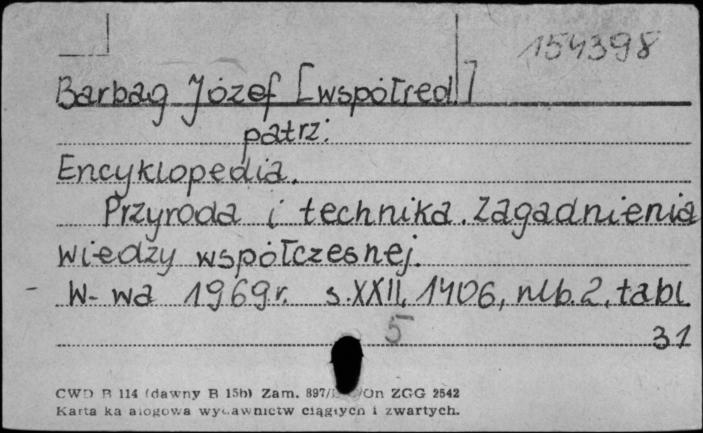 154398
Barbag Józef [współred.]
patrz:
Encyklopedia.
Przyroda i technika. Zagadnienia
wiedzy współczesnej.
W-wa 1969r. s.XXII, 1406, nlb.2, tabl
5
31
CWD B 114 (dawny B 15b) Zam. 897/ /On ZGG 2542
Karta ka alogowa wydawnictw ciągłych i zwartych.